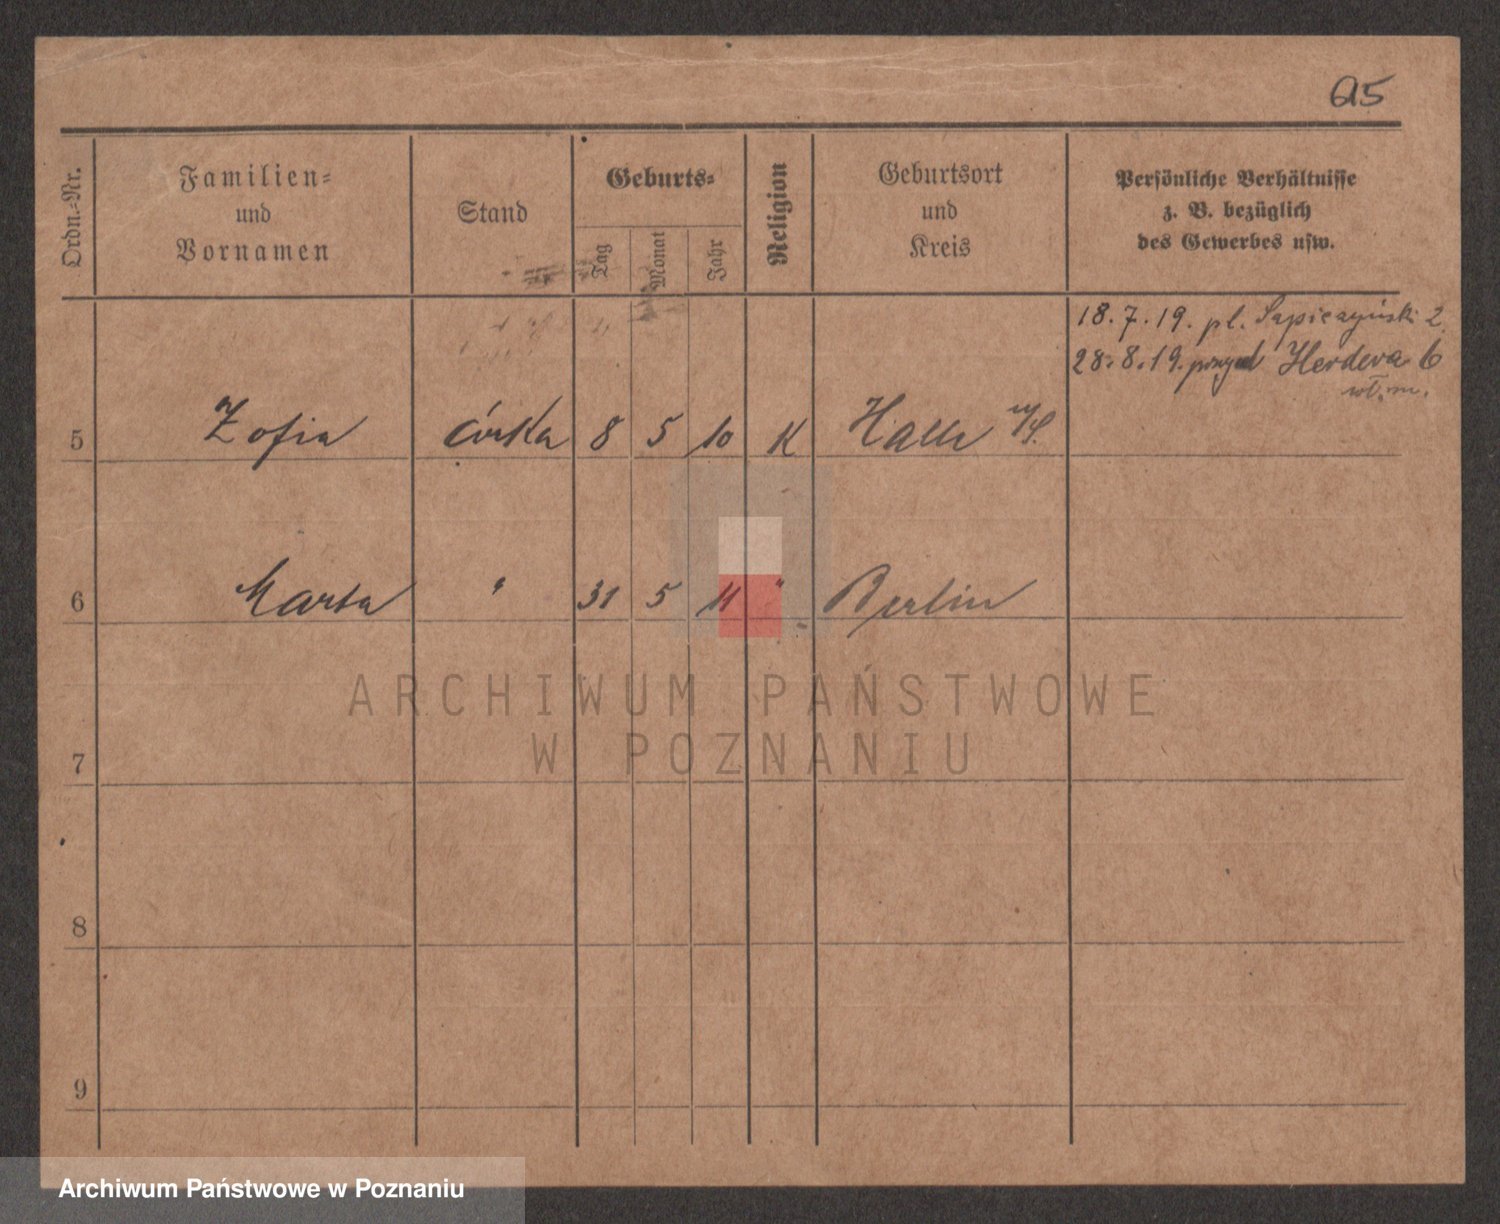 615
Ordn.-Nr.
Familien-
und
Vornamen
Stand
Geburts-
Tag
Monat
Jahr
Religion
Geburtsort
und
Kreis
Persönliche Verhältnisse
z. B. bezüglich
des Gewerbes usw.
18.7.19. pl. Sapieżyński 2
28.8.19. Herdera 6
wł. m.
5 Zofia córka 8 5 10 K Halle
6 Marta " 31 5 11 " Berlin
ARCHIWUM PAŃSTWOWE
W POZNANIU
7
8
9
Archiwum Państwowe w Poznaniu